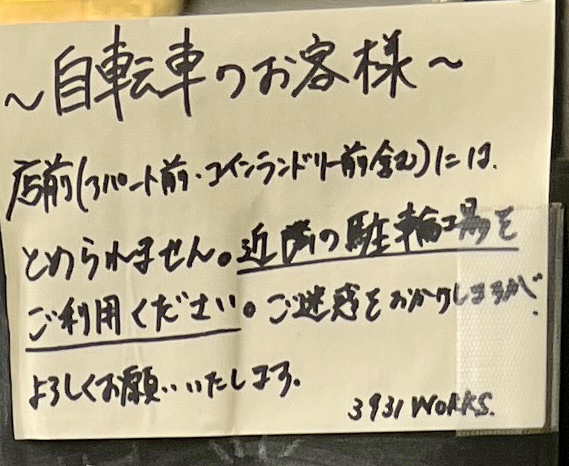 ～自転車のお客様～
店前(アパート前・コインランドリー前含む)には、
とめられません。近隣の駐輪場を
ご利用ください。ご迷惑をおかけしますが、
よろしくお願いいたします。
3931 WORKS.